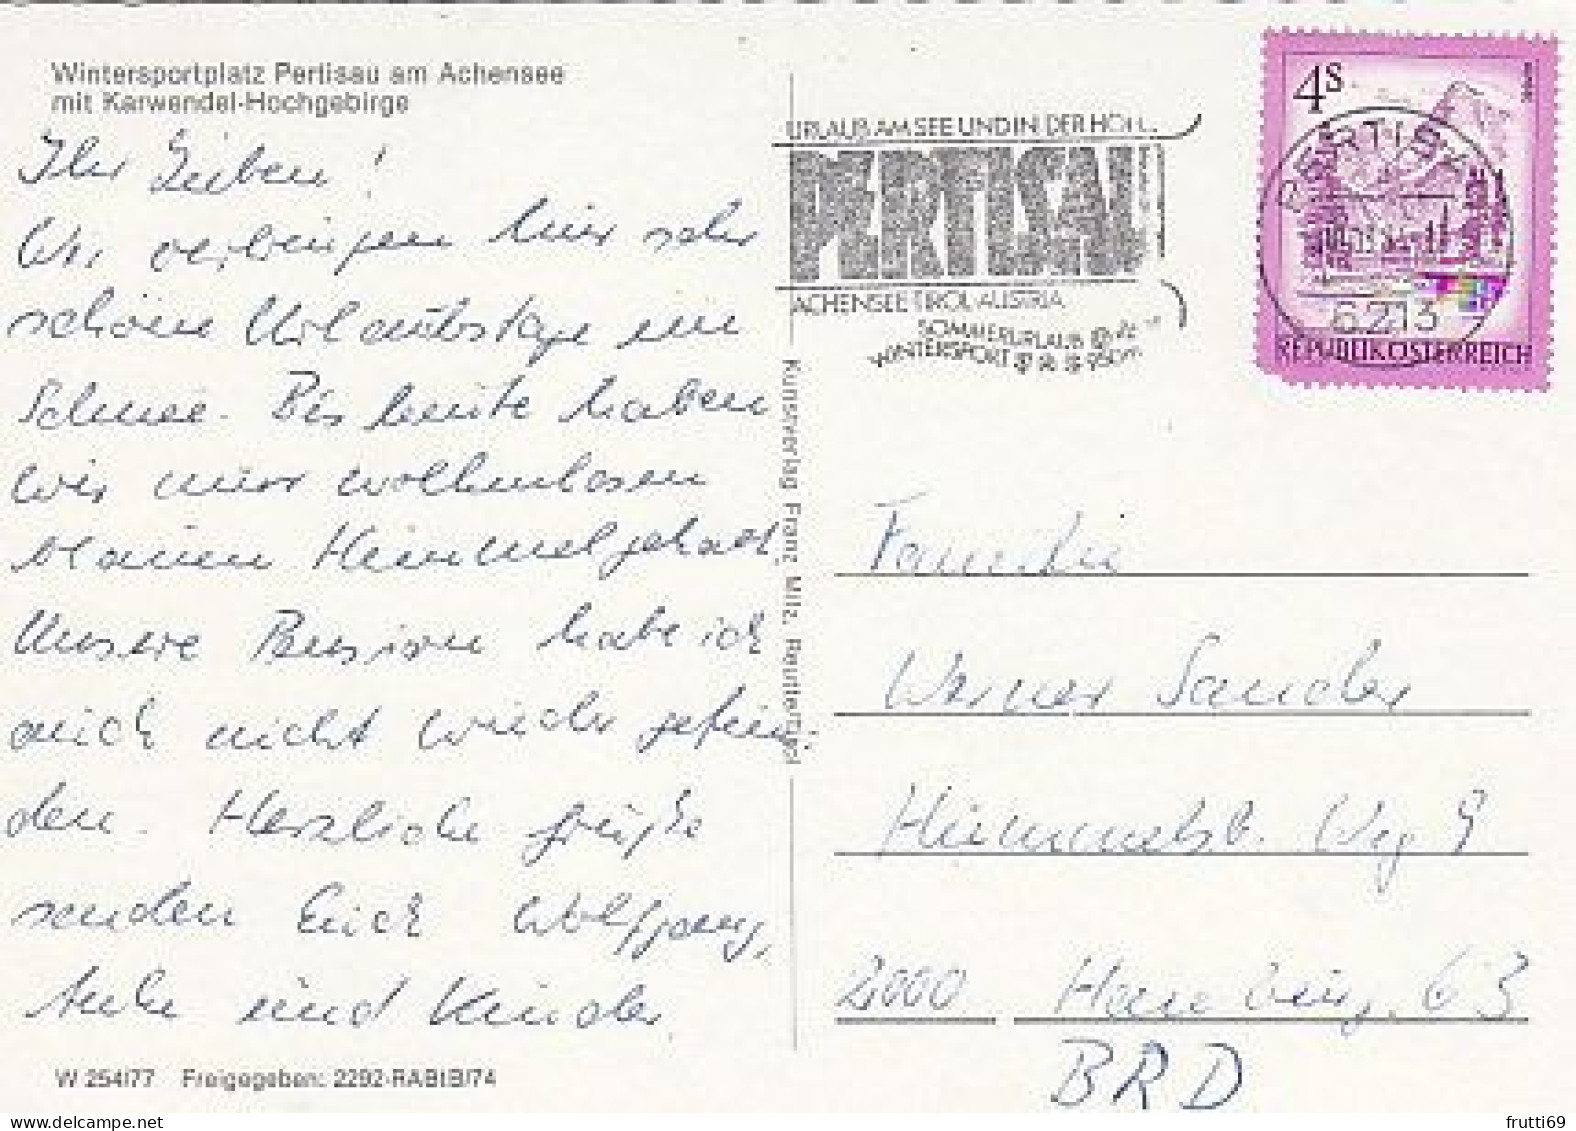 Wintersportplatz Pertisau am Achensee
mit Karwendel-Hochgebirge
Ihr Lieben!
Wir verbringen hier sehr
schöne Urlaubstage im
Schnee. Bis heute haben
wir nur wolkenlosen
blauen Himmel gehabt.
Unsere Pension habe ich
auch nicht wieder gefun-
den. Herzliche Grüße
senden Euch Wolfgang,
und Kinder.
W 254/77 Freigegeben: 2292-RABtB/74
Kunstverlag Franz Milz, Reutte/Tirol
URLAUB AM SEE UND IN DER HÖH
PERTISAU
ACHENSEE-TIROL-AUSTRIA
SOMMERURLAUB
WINTERSPORT 950m
4S
PERTISAU
6213
REPUBLIK ÖSTERREICH
Familie
Werner Sander
Weg 9
2000 Hamburg 63
BRD
frutti69